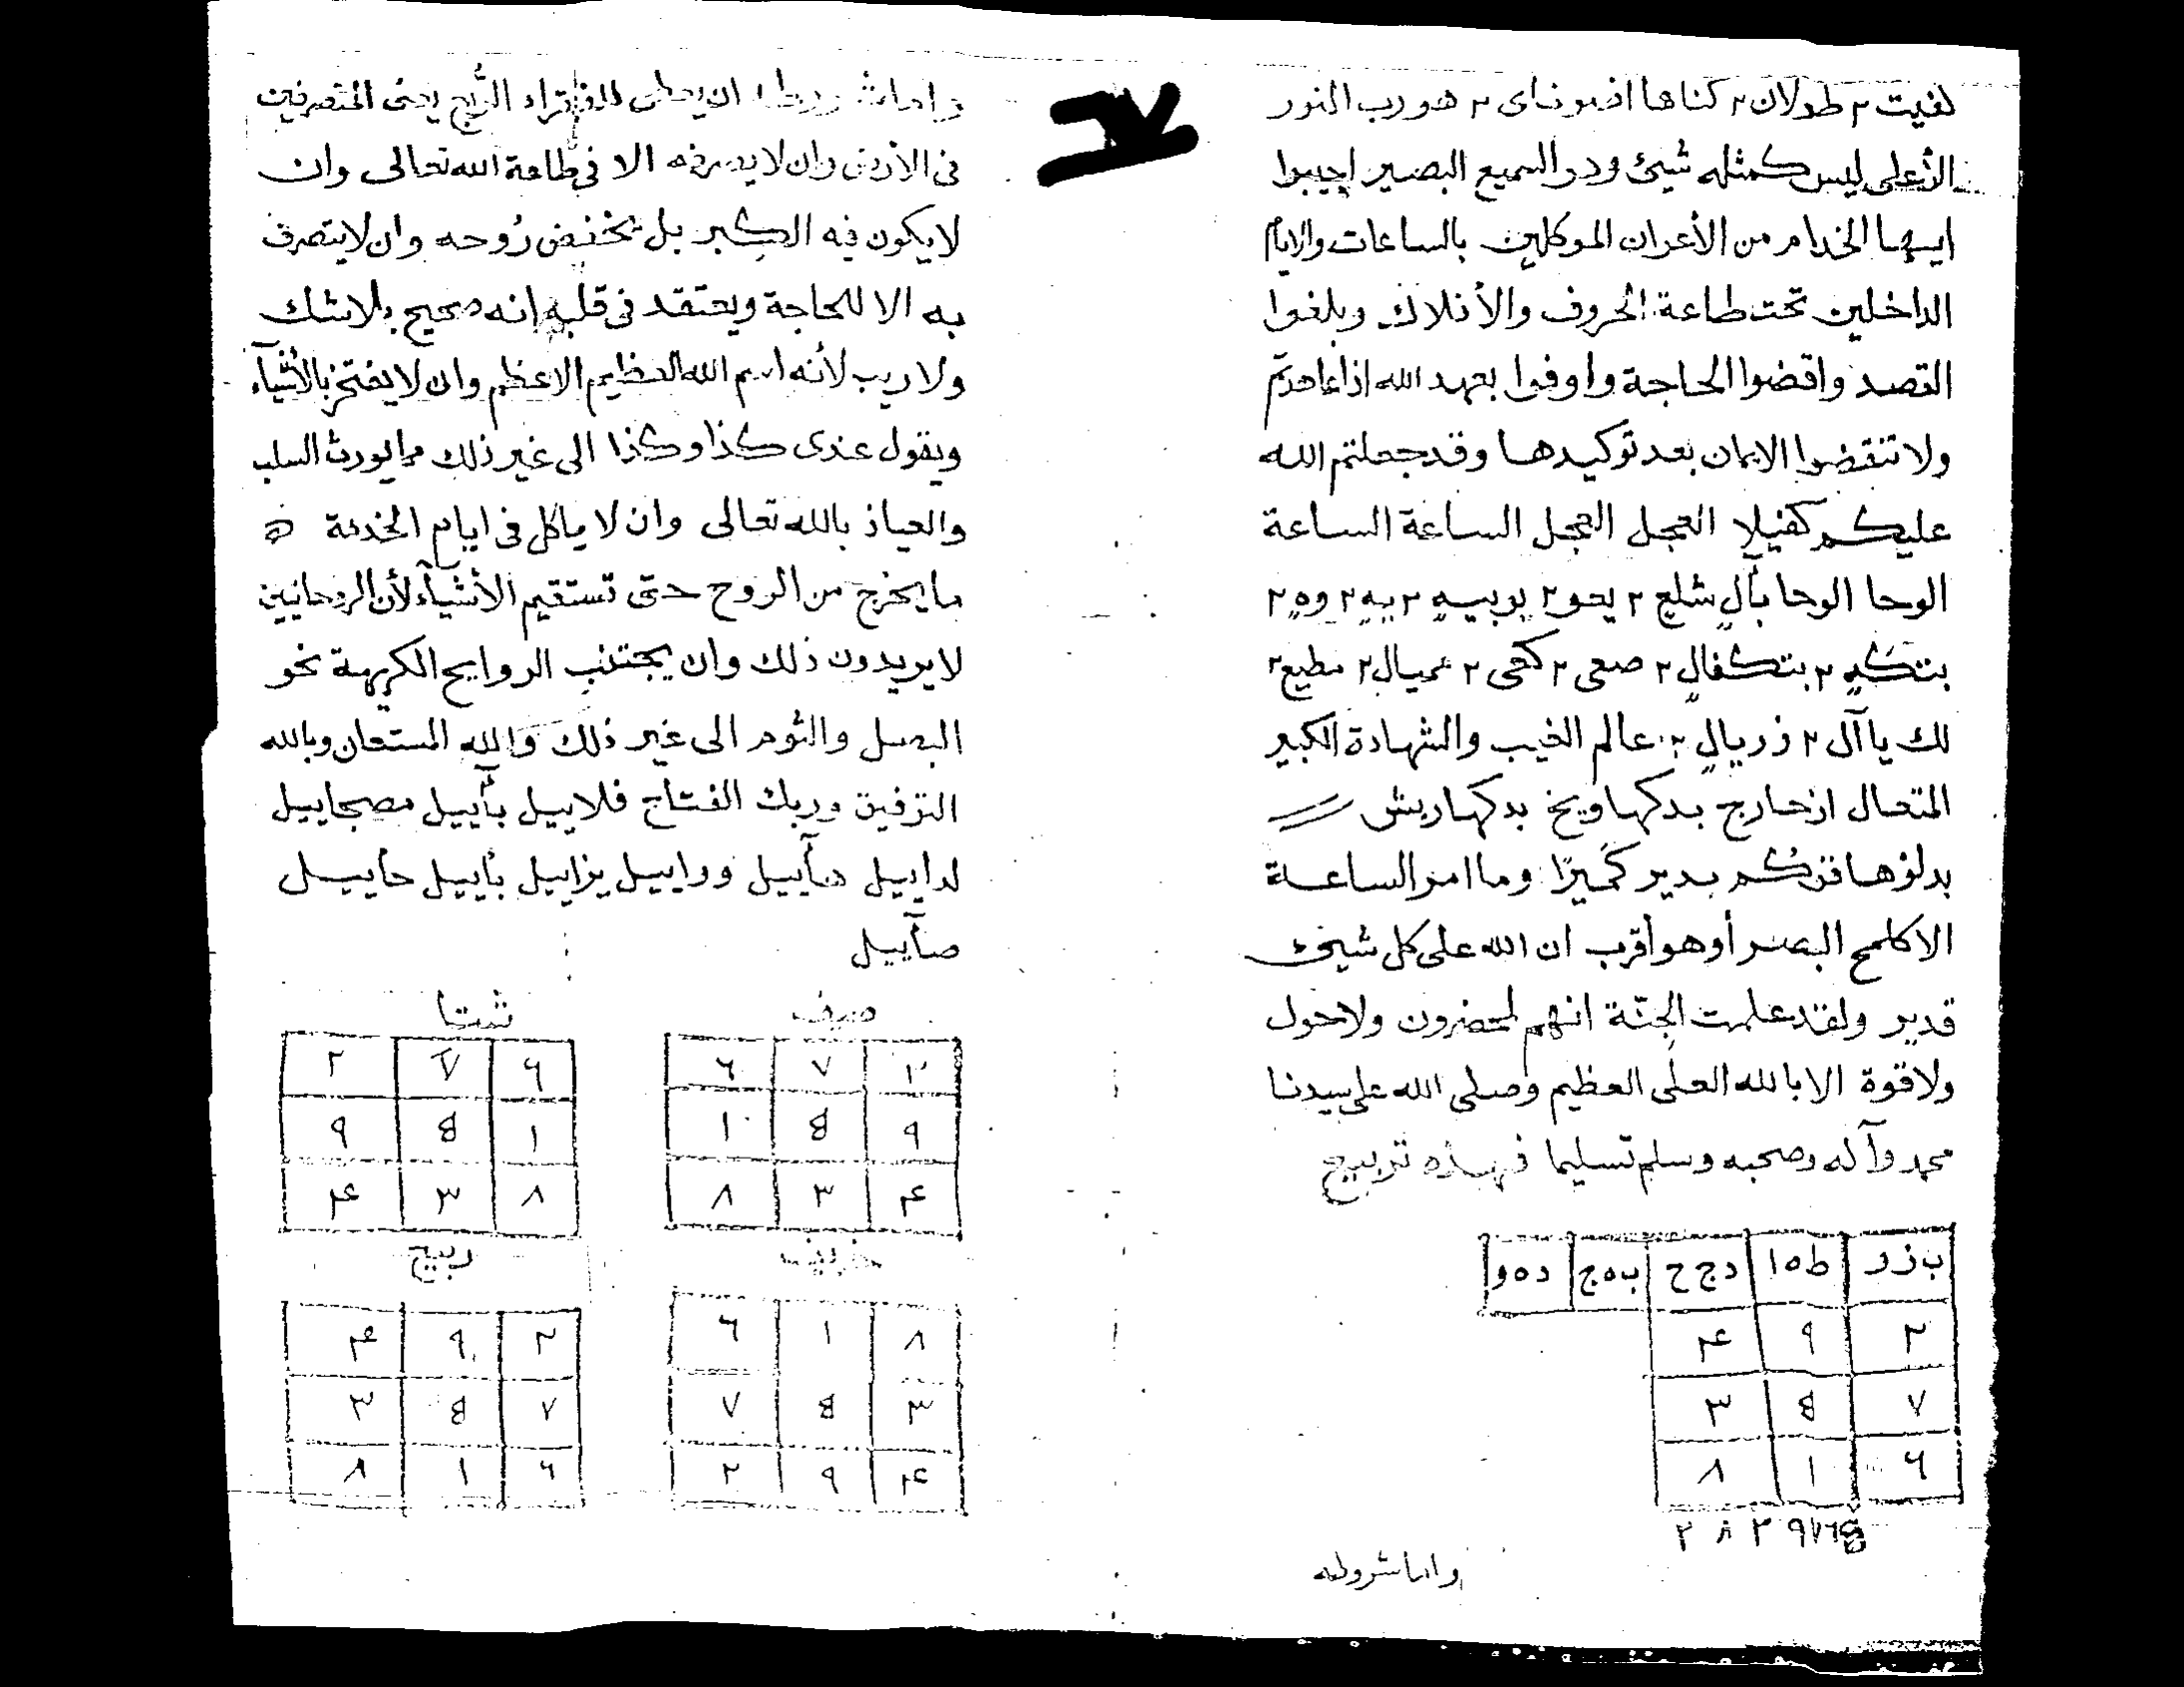 لغيت ٢ طولان ٢ كناها اضوناى ٢ هو رب النور
الأعلى ليس كمثله شيئ وهو السميع البصير اجيبوا
ايها الخدام من الأعوان الموكلين بالساعات والايام
الداخلين تحت طاعة الحروف والأفلاك وبلغوا
القصد واقضوا الحاجة واوفوا بعهد الله اذا عاهدتم
ولا تنقضوا الايمان بعد توكيدها وقد جعلتم الله
عليكم كفيلا العجل العجل الساعة الساعة
الوحا الوحا بآل شلع ٢ يعو ٢ يوبيه ٢ يه ٢ وه ٢
بتكه ٢ بتكفال ٢ صعى ٢ كعى ٢ ميال ٢ مطيع ٢
لك يا آل ٢ زريال ٢ عالم الغيب والشهادة الكبير
المتعال ازحارج بدكهاويخ بدكهاريش
بدير كميزا وما امر الساعة
الا كلمح البصر أو هو أقرب ان الله على كل شيئ
قدير ولقد علمت الجنّة انهم لمحضرون ولا حول
ولا قوة الا بالله العلى العظيم وصلى الله على سيدنا
محمد وآله وصحبه وسلم تسليما فهذه تربيع
ب ز و | ط ه ا | د ج ح | ب ه ج | د ه و
٢ ٩ ۴
٧ 8 ٣
٦ ١ ٨
واما شروطه
واما شروطه ان يعطى للفقراء الربع يعنى المتصرفين
فى الأرض وان لا يصرفه الا فى طاعة الله تعالى وان
لا يكون فيه الكبر بل يخفض رُوحه وان لا يتصرف
به الا للحاجة ويعتقد فى قلبه انه صحيح بلا شك
ولا ريب لأنه اسم الله العظيم الاعظم وان لا يفتخر بالأشيآء
ويقول عندى كذا وكذا الى غير ذلك مما يورث السلب
والعياذ بالله تعالى وان لا ياكل فى ايام الخدمة
ما يخرج من الروح حتى تستقيم الأشيآء لأن الروحانيين
لا يريدون ذلك وان يجتنب الروايح الكريهة نحو
البصل والثوم الى غير ذلك والله المستعان وبالله
التوفيق وربك الفتاح فلاييل بآييل مصجاييل
لداييل هآييل وراييل يزاييل بآييل حآييل
صآييل
صيف
٢ ٧ ٦
٩ 8 ١
۴ ٣ ٨
شتا
٦ ٧ ٢
١ 8 ٩
٨ ٣ ۴
خريف
٨ ١ ٦
٣ 8 ٧
۴ ٩ ٢
ربيع
٢ ٩ ۴
٧ 8 ٣
٦ ١ ٨